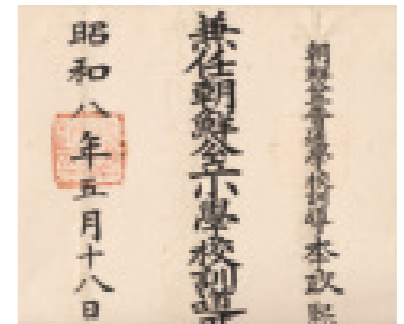 朝鮮公立普通學校訓導李政
兼任朝鮮公立小學校訓導
昭和八年五月十八日